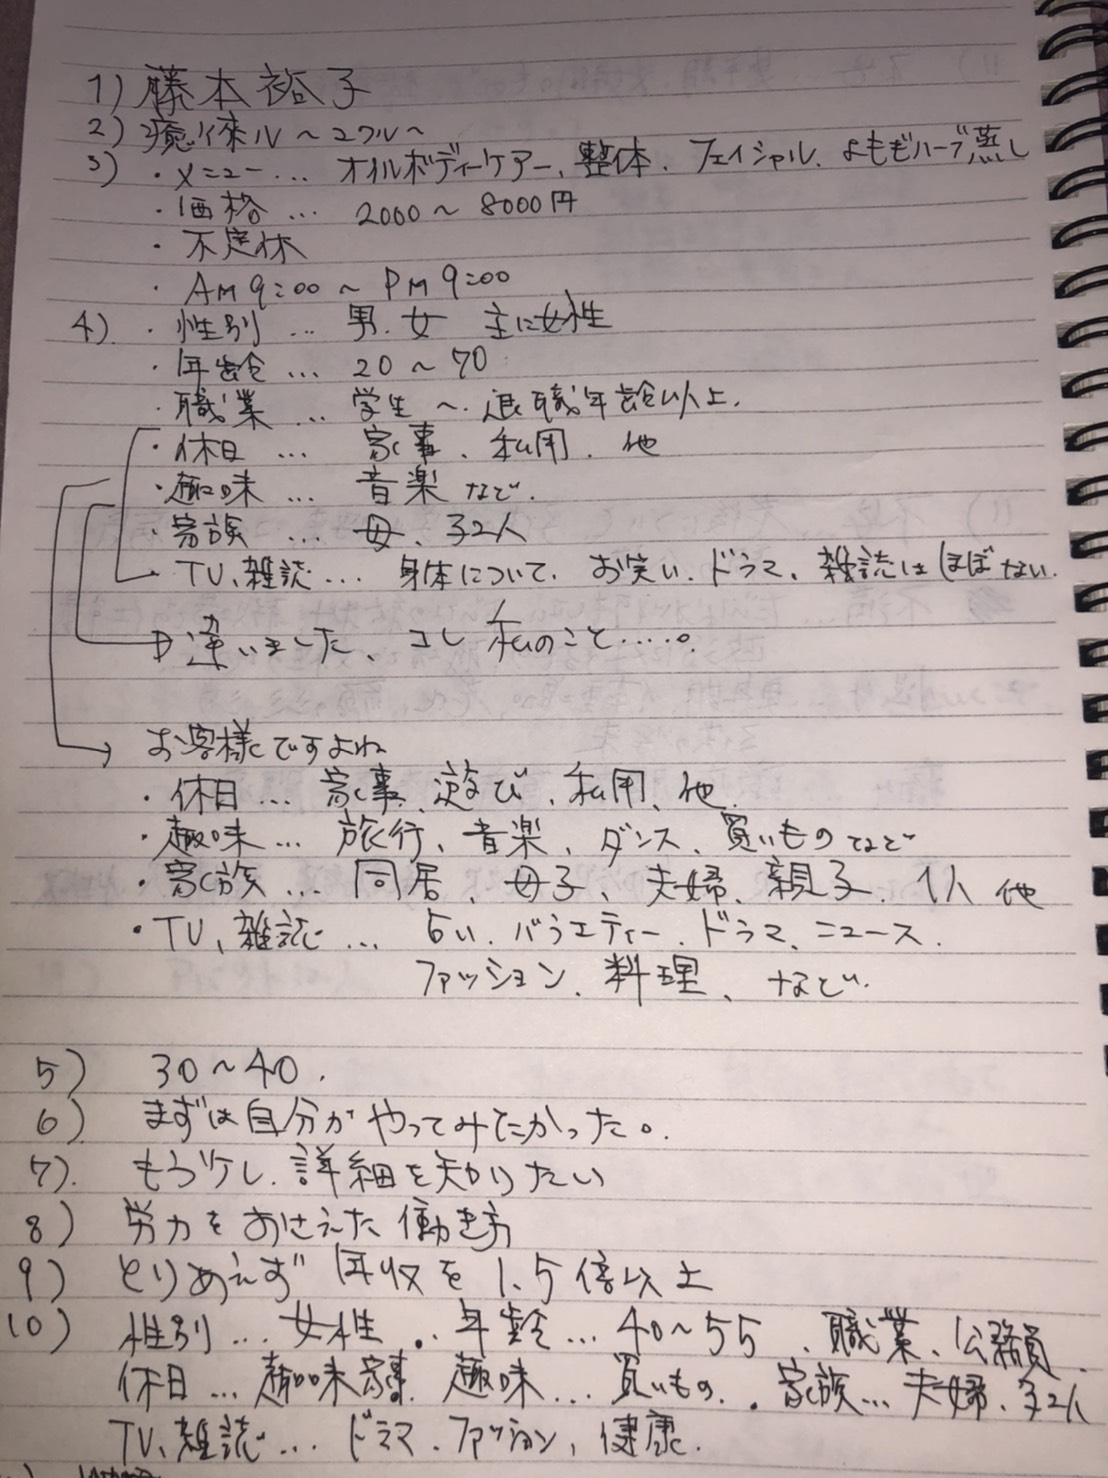 1) 藤本裕子
2) 癒し倈ル～ユクル～
3) ・メニュー… オイルボディーケアー、整体、フェイシャル、よもぎハーブ蒸し
・価格 … 2000～8000円
・不定休
・AM9:00～PM9:00
4) ・性別 … 男.女 主に女性
・年齢 … 20～70
・職業 … 学生～退職年齢以上.
・休日 … 家事、私用、他
・趣味 … 音楽 など.
・家族 … 母、子2人
・TV、雑誌 … 身体について、お笑い、ドラマ、雑誌はほぼない.
違いました、コレ 私のこと.....。
お客様ですよね
・休日 … 家事、遊び、私用、他.
・趣味 … 旅行、音楽、ダンス、買いもの など
・家族 … 同居、母子、夫婦、親子、1人 他
・TV、雑誌 … 占い、バラエティー、ドラマ、ニュース.
ファッション、料理、など.
5) 30～40.
6) まずは自分がやってみたかった。
7). もう少し、詳細を知りたい
8) 労力をおさえた働き方
9) とりあえず 年収を1.5倍以上
10) 性別 … 女性. 年齢 … 40～55 、職業、公務員.
休日 … 趣味家事. 趣味 … 買いもの. 家族 … 夫婦、子2人
TV、雑誌 … ドラマ、ファッション、健康.